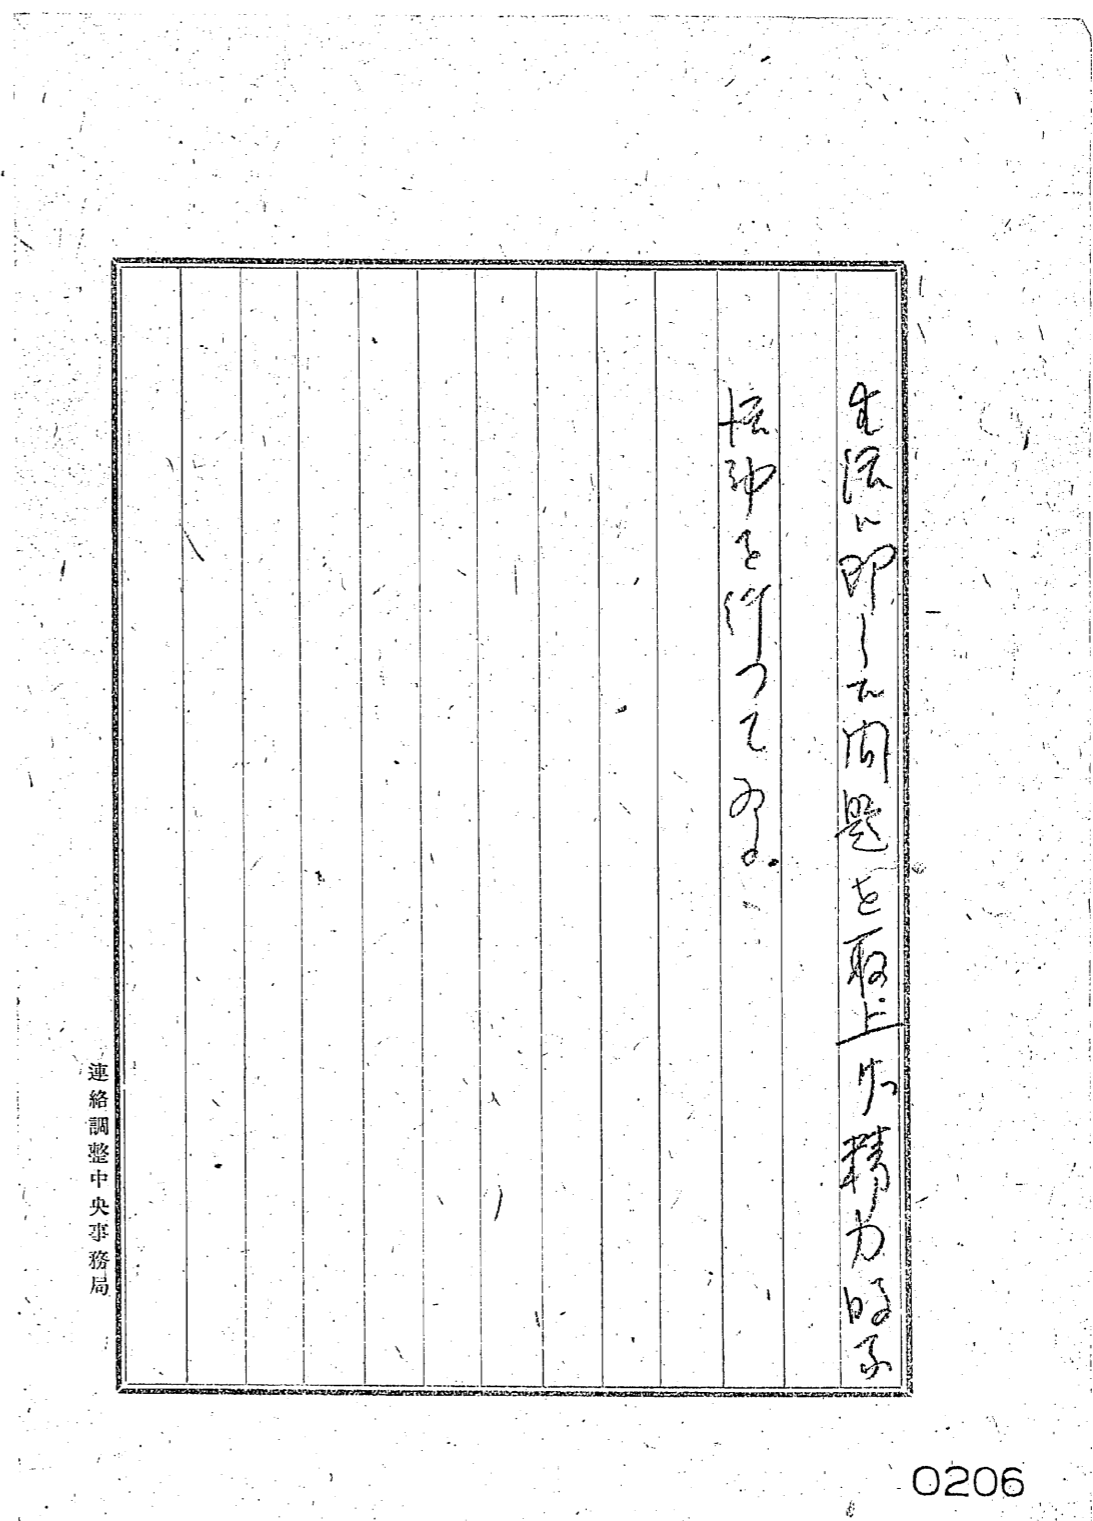 生活に即した問題を取上げ精力的な
活動を行つてゐる。
連絡調整中央事務局
0206